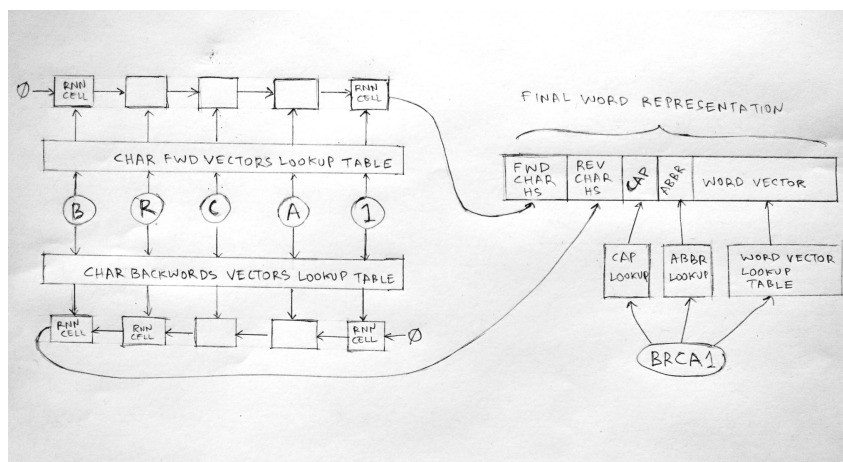 Ø RNN CELL RNN CELL
CHAR FWD VECTORS LOOKUP TABLE
B R C A 1
CHAR BACKWORDS VECTORS LOOKUP TABLE
RNN CELL RNN CELL RNN CELL Ø
FINAL WORD REPRESENTATION
FWD CHAR HS
REV CHAR HS
CAP
ABBR
WORD VECTOR
CAP LOOKUP
ABBR LOOKUP
WORD VECTOR LOOKUP TABLE
BRCA1